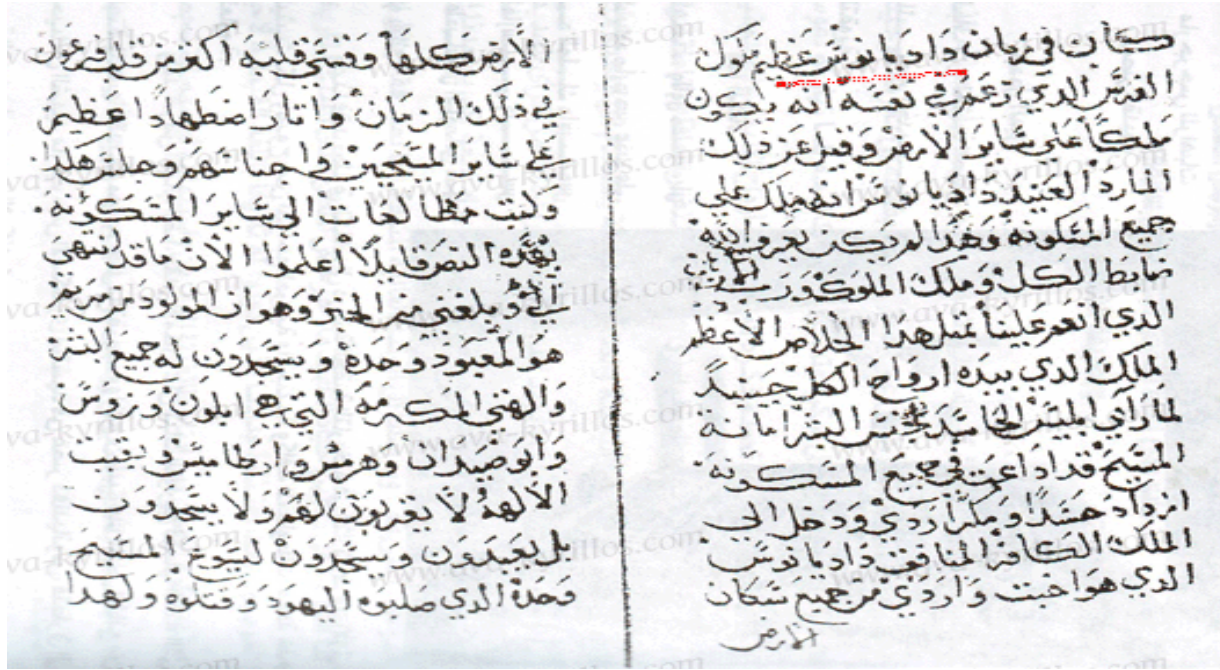 كان في زمان داديانوس عظيم ملوك
الفرس الدي زعم في نفسه انه يكون
ملكاً على ساير الارض وقيل عن ذلك
المارد العنيد داديانوس انه ملك على
جميع المسكونة وهذا لم يكن يعرف الله
ضابط الكل وملك الملوك ورب
الذي انعم علينا بمثل هذا الخلاص الاعظم
الملك الدي بيده ارواح الكل حينيد
لما راي ابليس الحاسد لجنس البشر امانة
المسيح قد اداعت في جميع المسكونة
ازداد حسداً ومكراً ردي ودخل الي
الملك الكافر المنافق داديانوس
الدي هو اخبت واردي من جميع سكان
الارض
الارض كلها وقسي قلبه اكثر من قلب فرعون
في ذلك الزمان واتار اضطهاداً عظيم
على ساير المسيحيين في اجناسهم وجلس هدا
وكتب خطاً لغات الي ساير المسكونة
بهده النص قايلاً اعلموا الان ما قد انتهي
الي وبلغني من الخبر وهو ان المولود من مريم
هو المعبود وحده ويسجدون له جميع البشر
والهتي المكرمة التي هي ابلون وزوس
وابوصيدان وهرمس وارطاميس وبقيت
الالهة لا يقربون لهم ولا يسجدون
بل يعبدون ويسجدون ليسوع المسيح
وحده الذي صلبوه اليهود وقتلوه ولهدا
www.ava-kyrillos.com